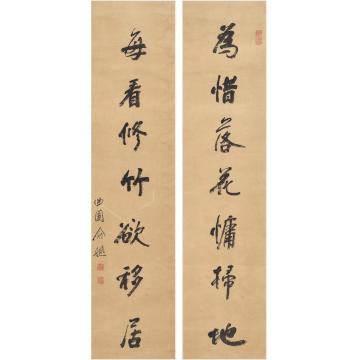 為惜落花慵掃地
每看修竹欲移居
曲園俞樾